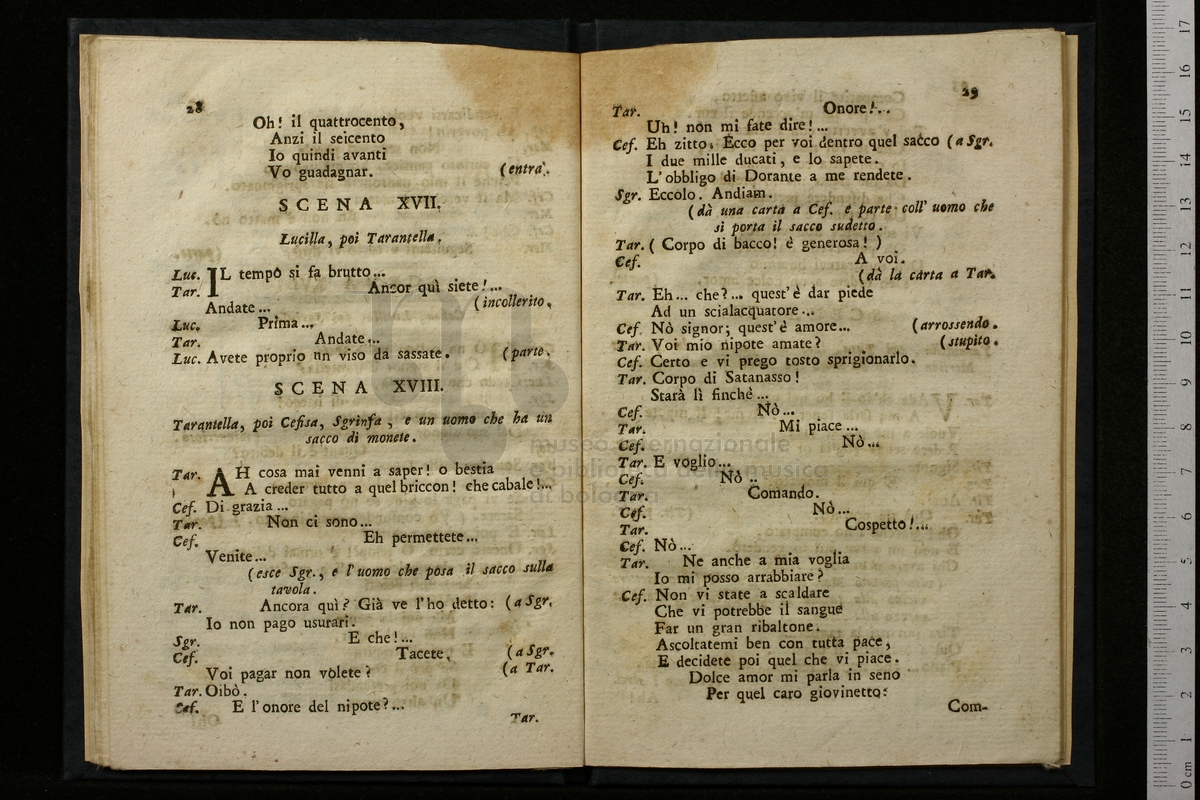 28
Oh! il quattrocento,
Anzi il seicento
Io quindi avanti
Vo guadagnar. (entra.
SCENA XVII.
Lucilla, poi Tarantella.
Luc. IL tempo si fa brutto...
Tar. Ancor quì siete!...
Andate... (incollerito.
Luc. Prima...
Tar. Andate...
Luc. Avete proprio un viso da sassate. (parte.
SCENA XVIII.
Tarantella, poi Cefisa, Sgrinfa, e un uomo che ha un
sacco di monete.
Tar. AH cosa mai venni a saper! o bestia
A creder tutto a quel briccon! che cabale!...
Cef. Di grazia...
Tar. Non ci sono...
Cef. Eh permettete...
Venite...
(esce Sgr., e l'uomo che posa il sacco sulla
tavola.
Tar. Ancora quì? Già ve l'ho detto: (a Sgr.
Io non pago usurari.
Sgr. E che!...
Cef. Tacete. (a Sgr.
Voi pagar non volete? (a Tar.
Tar. Oibò.
Cef. E l'onore del nipote?...
Tar.
29
Tar. Onore!...
Uh! non mi fate dire!...
Cef. Eh zitto. Ecco per voi dentro quel sacco (a Sgr.
I due mille ducati, e lo sapete.
L'obbligo di Dorante a me rendete.
Sgr. Eccolo. Andiam.
(dà una carta a Cef. e parte coll' uomo che
si porta il sacco sudetto.
Tar. ( Corpo di bacco! è generosa! )
Cef. A voi.
(dà la carta a Tar.
Tar. Eh... che?... quest'è dar piede
Ad un scialacquatore...
Cef. Nò signor; quest'è amore... (arrossendo.
Tar. Voi mio nipote amate? (stupito.
Cef. Certo e vi prego tosto sprigionarlo.
Tar. Corpo di Satanasso!
Starà lì finchè...
Cef. Nò...
Tar. Mi piace...
Cef. Nò...
Tar. E voglio...
Cef. Nò..
Tar. Comando.
Cef. Nò...
Tar. Cospetto!...
Cef. Nò...
Tar. Ne anche a mia voglia
Io mi posso arrabbiare?
Cef. Non vi state a scaldare
Che vi potrebbe il sangue
Far un gran ribaltone.
Ascoltatemi ben con tutta pace,
E decidete poi quel che vi piace.
Dolce amor mi parla in seno
Per quel caro giovinetto:
Com-
museo internazionale
e biblioteca della musica
di bologna
0 cm 1 2 3 4 5 6 7 8 9 10 11 12 13 14 15 16 17